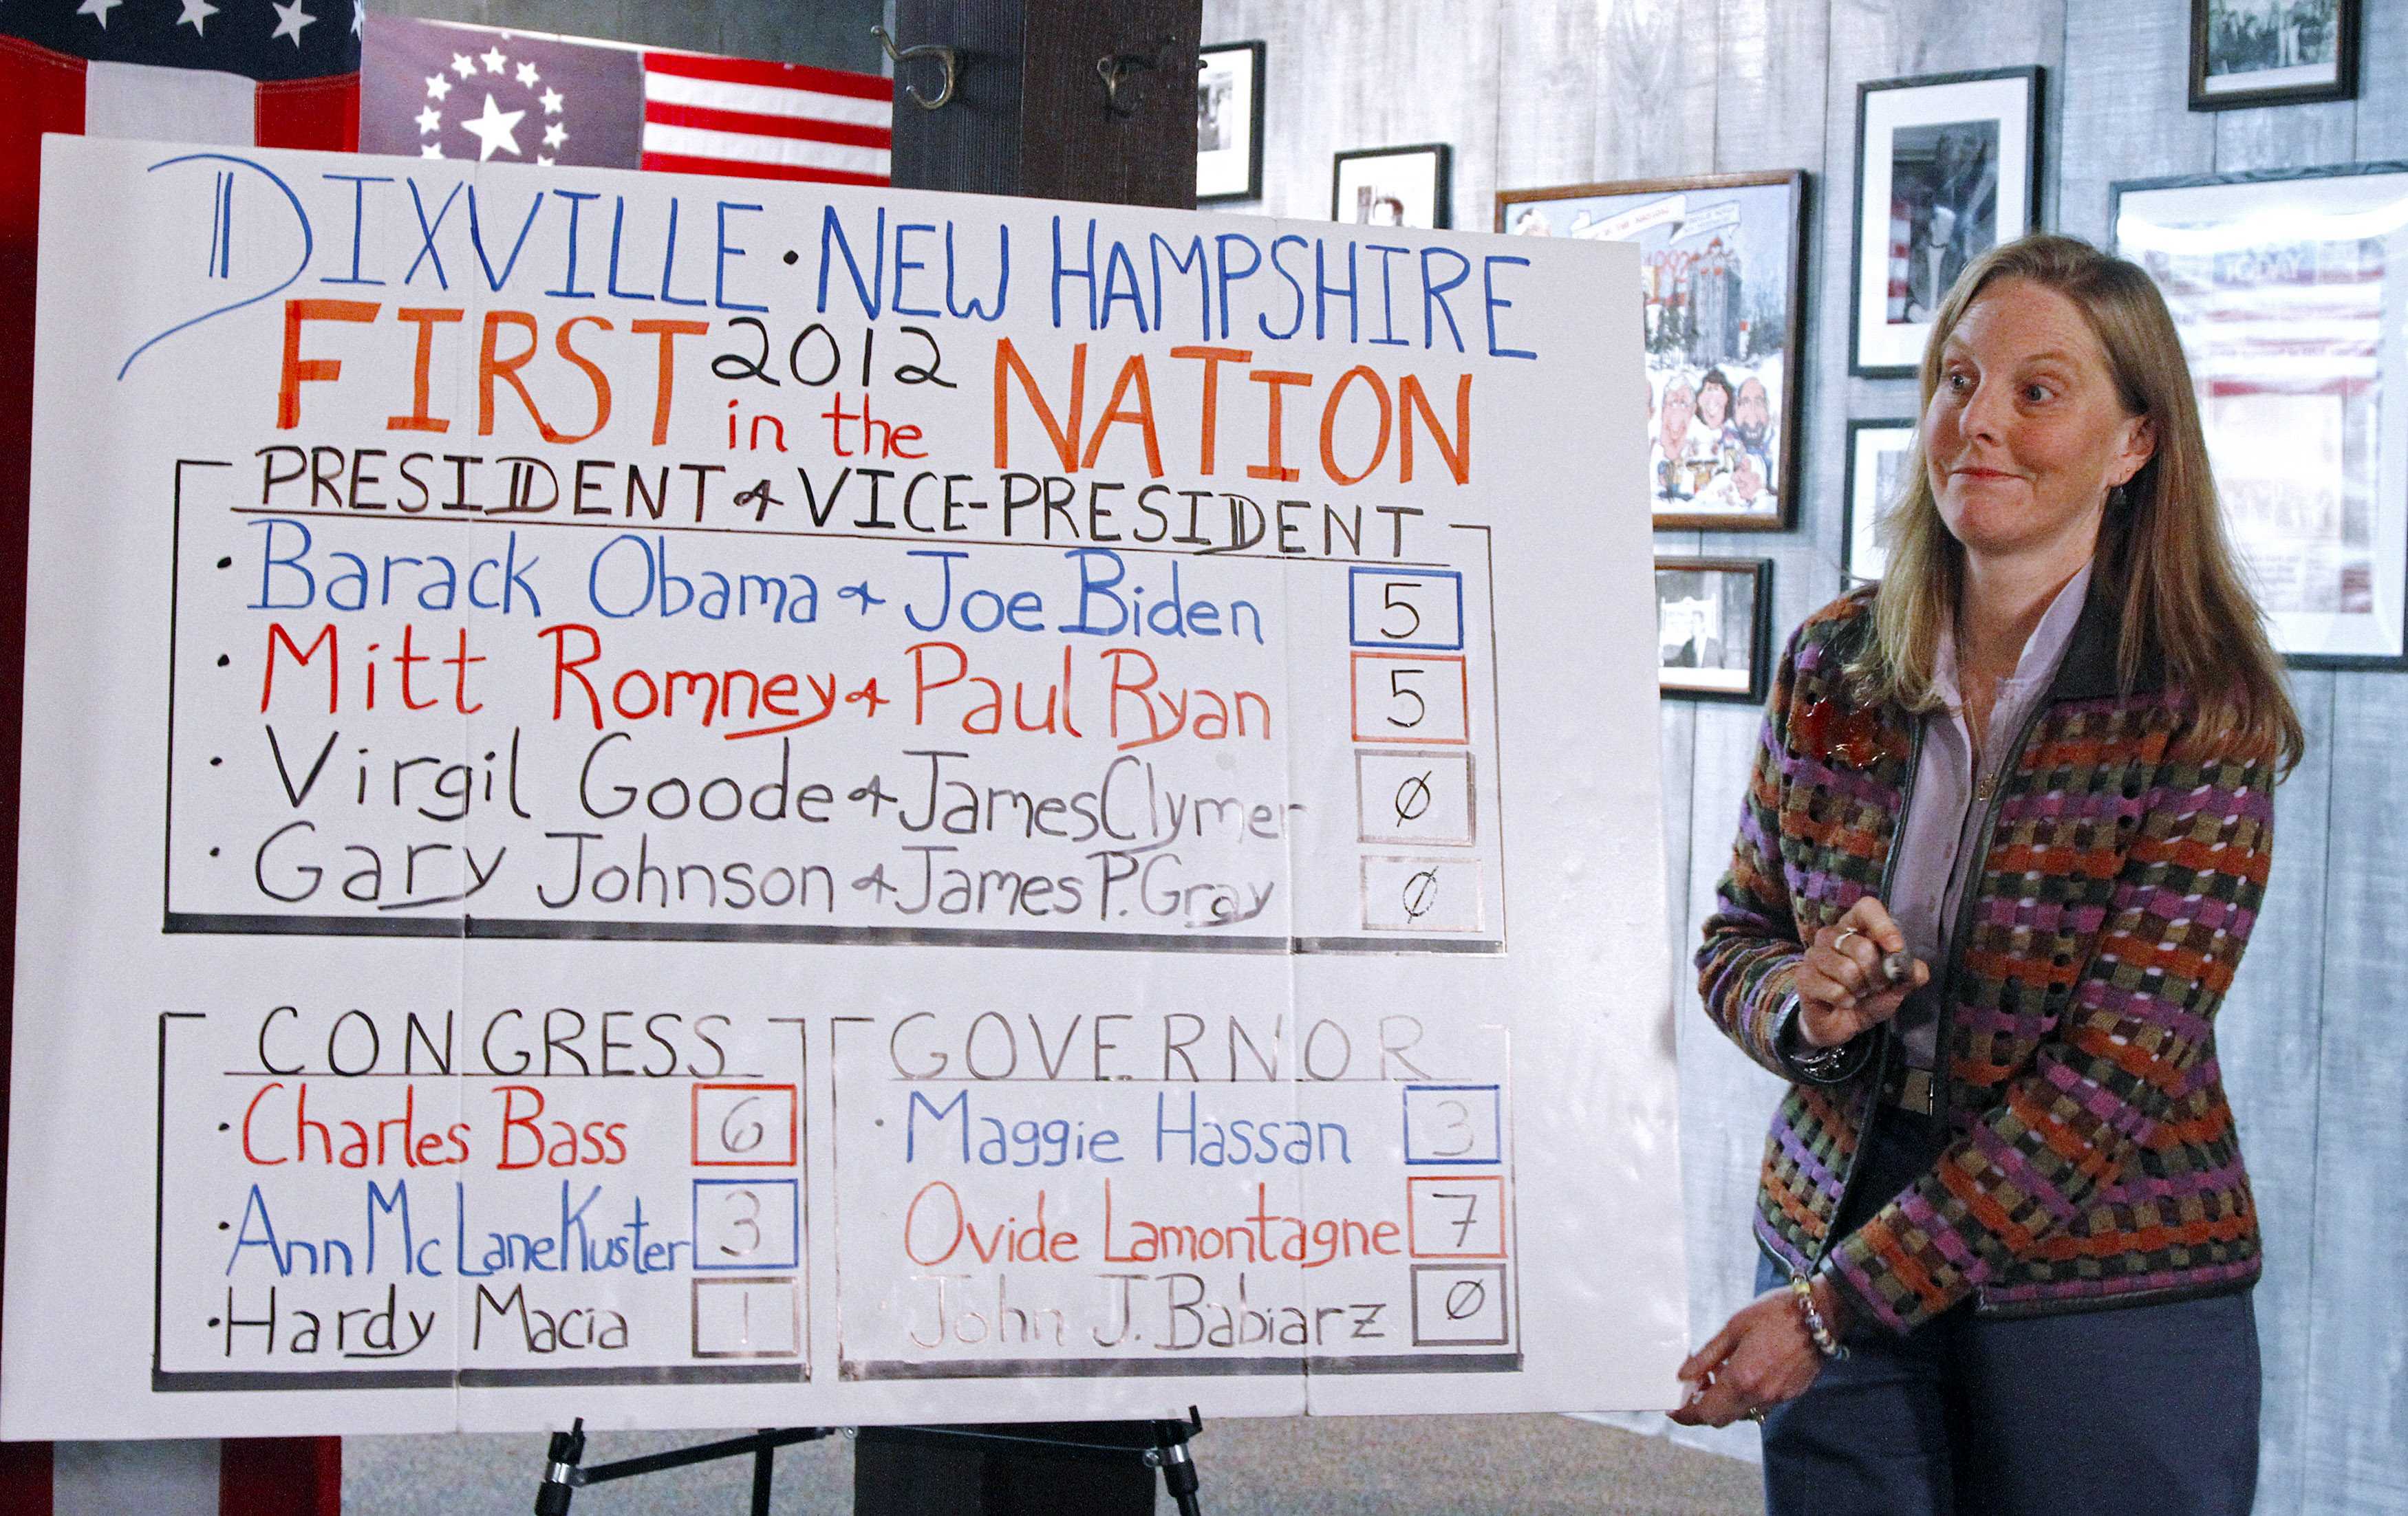 DIXVILLE · NEW HAMPSHIRE
FIRST 2012 in the NATION
PRESIDENT & VICE-PRESIDENT
· Barack Obama & Joe Biden 5
· Mitt Romney & Paul Ryan 5
· Virgil Goode & James Clymer 0
· Gary Johnson & James P. Gray 0
CONGRESS
· Charles Bass 6
· Ann McLane Kuster 3
· Hardy Macia 1
GOVERNOR
· Maggie Hassan 3
Ovide Lamontagne 7
· John J. Babiarz 0